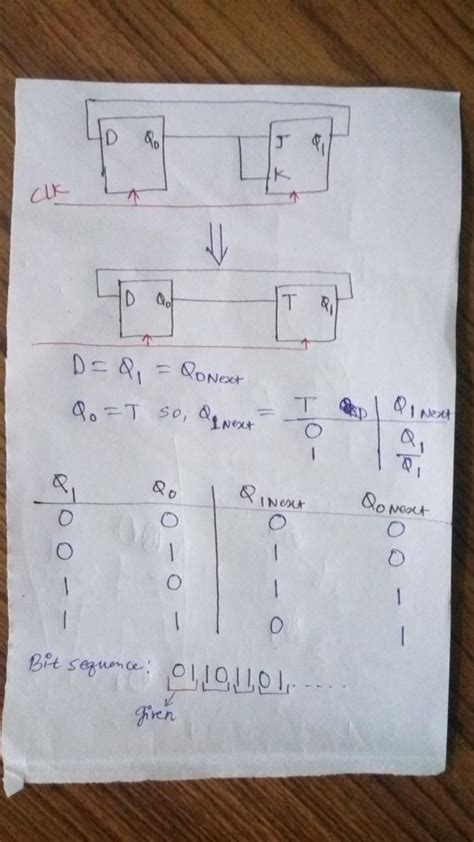 D Q₀ J Q₁
K
CLK
D Q₀ T Q₁
D = Q₁ = Q₀Next
Q₀ = T so, Q₁Next = T | Q₁Next
0 | Q₁
1 | Q̅₁
Q₁ Q₀ | Q₁Next Q₀Next
0 0 | 0 0
0 1 | 1 0
1 0 | 1 1
1 1 | 0 1
Bit sequence: 01101101.....
given